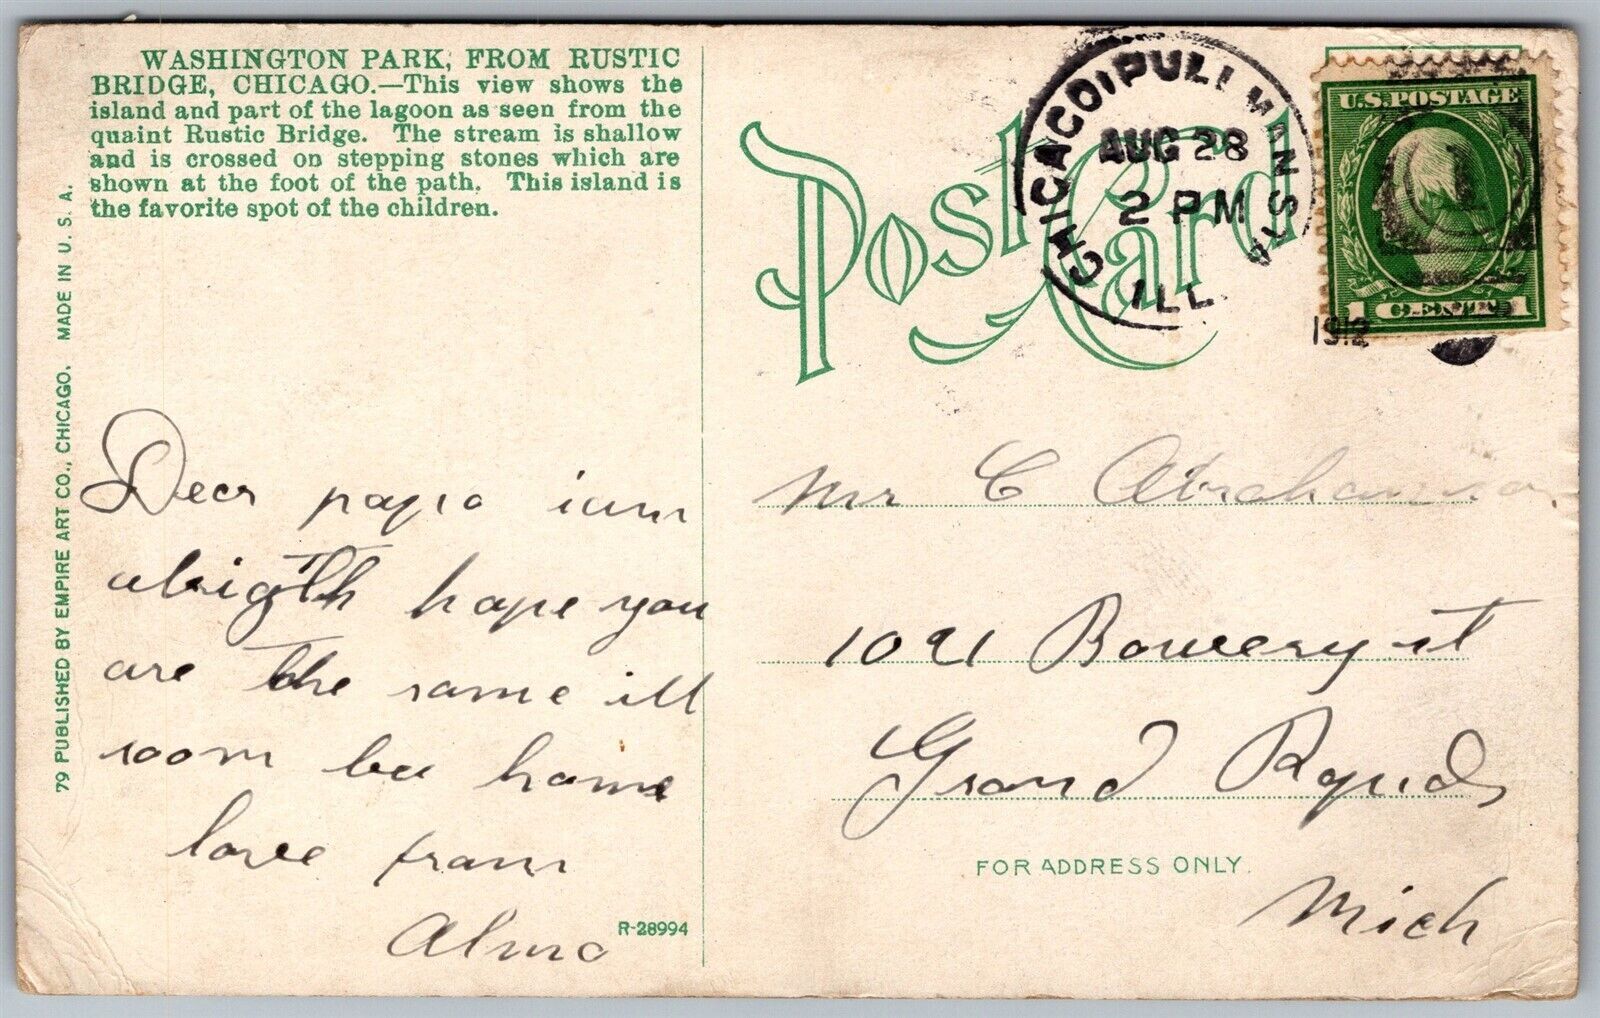 WASHINGTON PARK, FROM RUSTIC
BRIDGE, CHICAGO.—This view shows the
island and part of the lagoon as seen from the
quaint Rustic Bridge. The stream is shallow
and is crossed on stepping stones which are
shown at the foot of the path. This island is
the favorite spot of the children.
79 PUBLISHED BY EMPIRE ART CO., CHICAGO. MADE IN U. S. A.
Post Card
CHICAGO (PULLMAN STA
AUG 28
2 PM
ILL.
1912
U.S. POSTAGE
1 CENT 1
Dear papa iam
alrigth hope you
are the same ill
soon bee home
love from
Alma
R-28994
Mr C Abrahamson
1021 Bowery st
Grand Rapids
FOR ADDRESS ONLY.
Mich